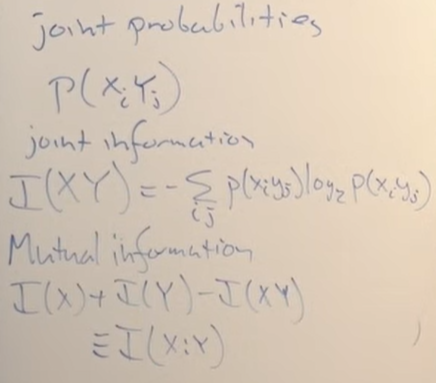 joint probabilities
P(XᵢYⱼ)
joint information
I(XY) = - Σᵢⱼ p(xᵢyⱼ) log₂ p(xᵢyⱼ)
Mutual information
I(X)+I(Y)-I(XY)
≡I(X:Y)